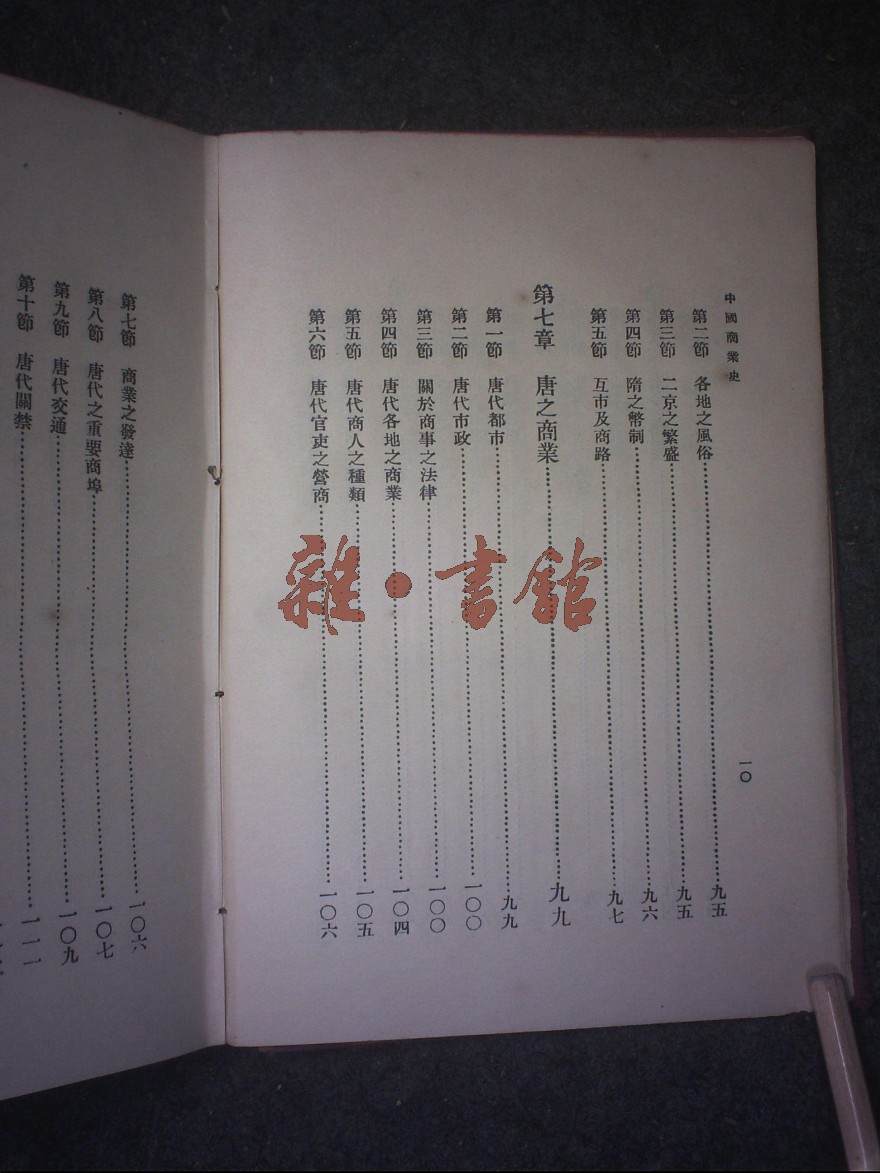 中國商業史
一〇
第二節 各地之風俗……九五
第三節 二京之繁盛……九五
第四節 隋之幣制……九六
第五節 互市及商路……九七
第七章 唐之商業……九九
第一節 唐代都市……九九
第二節 唐代市政……一〇〇
第三節 關於商事之法律……一〇〇
第四節 唐代各地之商業……一〇四
第五節 唐代商人之種類……一〇五
第六節 唐代官吏之營商……一〇六
第七節 商業之發達……一〇六
第八節 唐代之重要商埠……一〇七
第九節 唐代交通……一〇九
第十節 唐代關禁……一一一
雜·書館